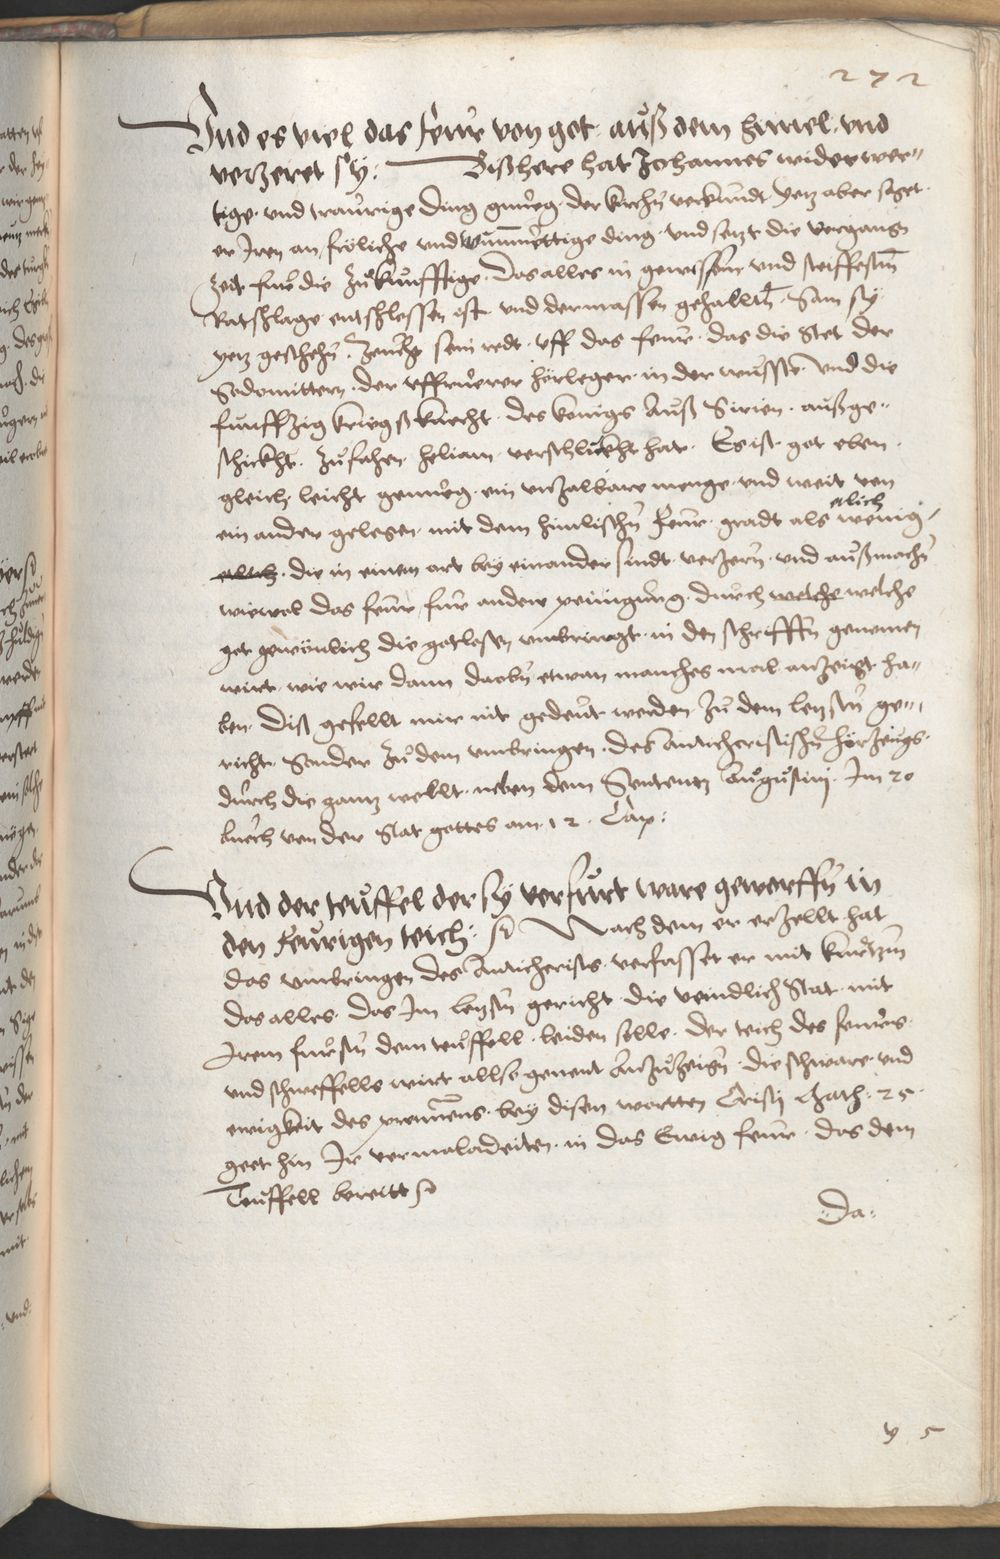 272
Vnd es viel das feür von got. aůß dem himel. vnd
verzeret sÿ: Bißhere hat Johannes widerwer-
tige. vnd traůrige ding gnůg. der kirchn̄ verkůndt. yetz aber saget
er Jren an, fröliche vnd ding. vnd setzt die vergangn̄
zeit fůr die zůkůnfftige. Das alles in gewissem vnd steiffestn̄
Ratschlage entschlossen ist. vnd dermassen gehalltn̄. Sam sÿ
yetz geschehn̄. sein redt. vff das feür. das die Stet der
Sodomittern. der vffrůrer hörleger. in der wůsste. Vnd die
fünffzig kriegßknecht. des konigs Auß Sirien. außge-
schickht. Zůfahen heliam verschluckht hat. Es ist got eben
gleich, leicht genůg. ein vnzalbare menge. vnd weit von
ein ander gelegen. mit dem himlischn̄ feür. gradt als wenig
etlich
etlich. die in einem ort bey einander sindt. verzern̄. vnd außmachn̄
wiewol das feür, für ander peinigůng. důrch welche welche
got gewönlich die gotlosen vmbringt. in den schrifftn̄ genomen
wirt. wie wir dann etwan manches mal anzeigt ha-
ben. Diß gefellt mir nit gedeůt werden. Zů dem letzstn̄ ge-
richt. Sonder zů dem vmbringen. des Antichristischn̄ hörzeůgs.
důrch die gantz wellt. neben dem Sententz Augůstinj. Jm 20
bůch von der Stat gottes am. 12. Cap:
Vnd der teůffel der sÿ verfůrt ware geworffn̄ in
den feůrigen teich: Nach dem er erzellt hat
das vmbringen des Antichrists. verfasset er mit kůrtzm
das alles. das Jm letzstn̄ gericht. die veindlich Stat. mit
Jrem fůrstn̄ dem teůffell. leiden solle. Der teich des feüres.
vnd schweffells wirt allso genent anzůzeign̄. die schware. vnd
ewigkeit des. bey disen wortten Cristj Math. 25.
geet hin Jr vermaladeiten. in das Ewig feür. das dem
Teüffell bereitt
:Da:
y 5